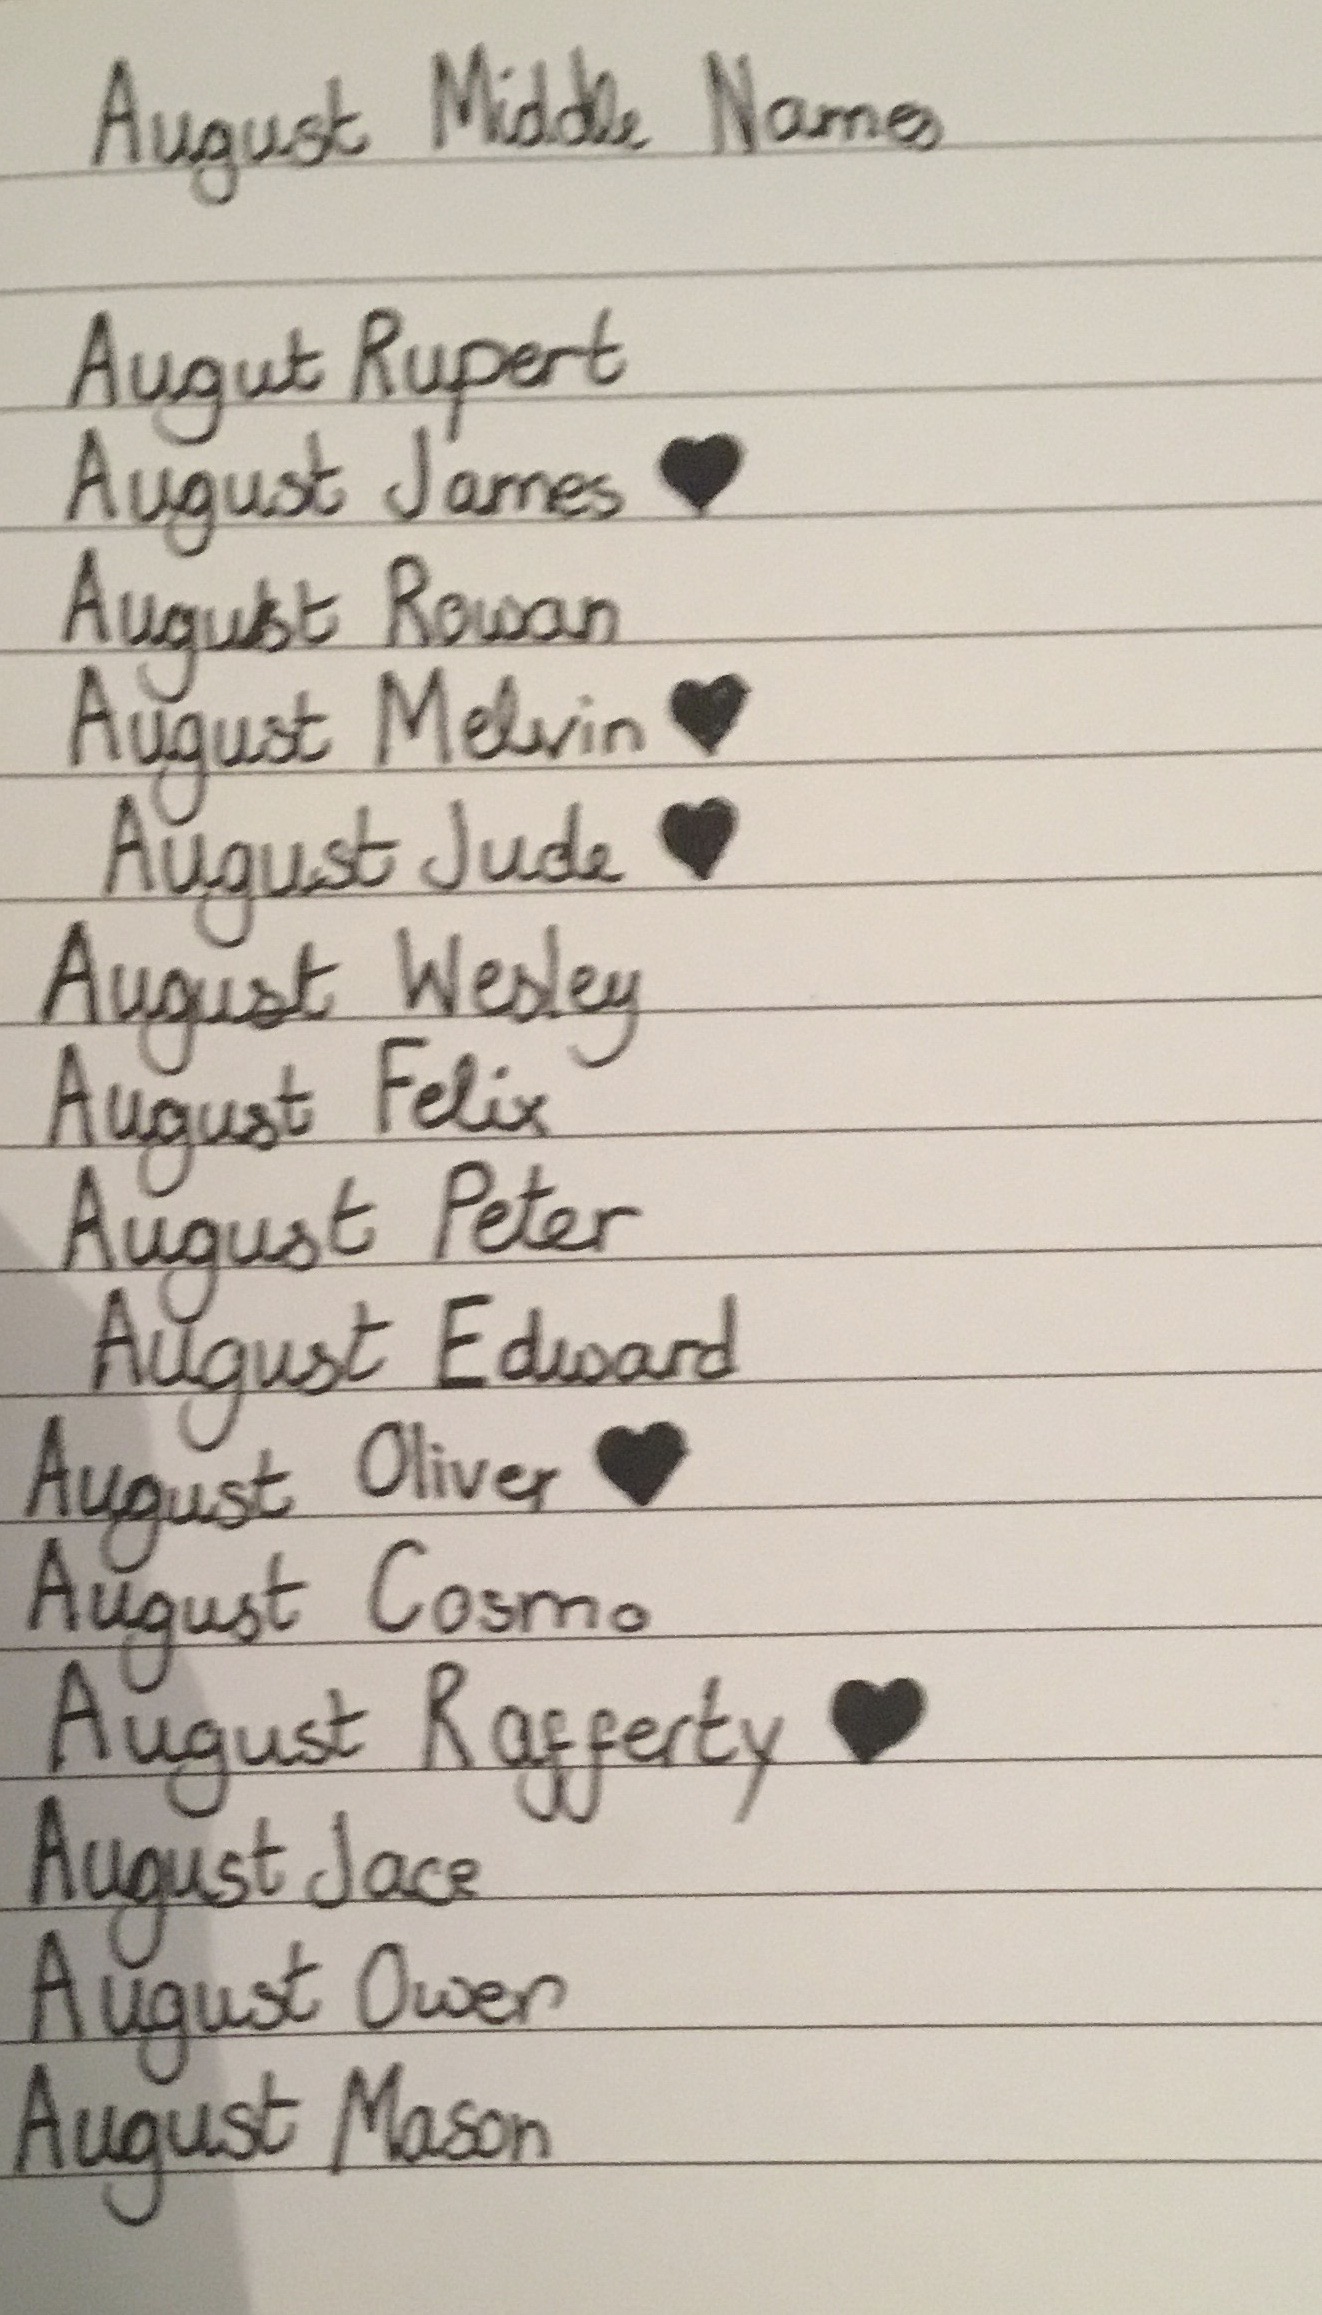 August Middle Names
Augut Rupert
August James ♥
August Rowan
August Melvin ♥
August Jude ♥
August Wesley
August Felix
August Peter
August Edward
August Oliver ♥
August Cosmo
August Rafferty ♥
August Jace
August Owen
August Mason